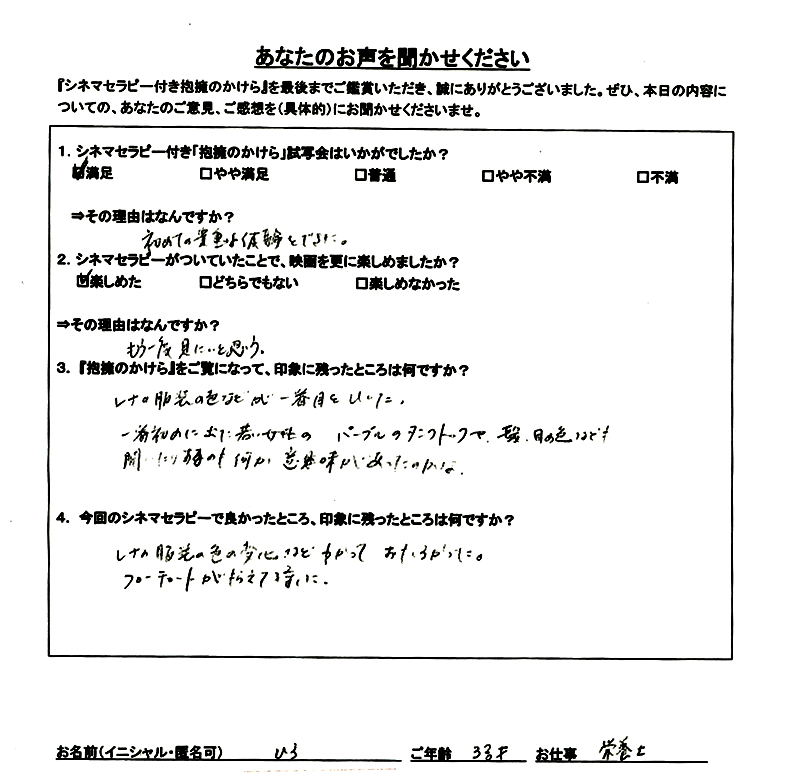 あなたのお声を聞かせください
『シネマセラピー付き抱擁のかけら』を最後までご鑑賞いただき、誠にありがとうございました。ぜひ、本日の内容に
ついての、あなたのご意見、ご感想を(具体的)にお聞かせくださいませ。
1. シネマセラピー付き「抱擁のかけら」試写会はいかがでしたか？
☑満足 □やや満足 □普通 □やや不満 □不満
⇒その理由はなんですか？
初めての貴重な体験をできた。
2. シネマセラピーがついていたことで、映画を更に楽しめましたか？
☑楽しめた □どちらでもない □楽しめなかった
⇒その理由はなんですか？
もう一度見たいと思う。
3. 『抱擁のかけら』をご覧になって、印象に残ったところは何ですか？
レナの服装の色などが一番目をひいた。
一番初めに出た若い女性の パープルのタンクトップや、髪、目の色なども
何か意味があったのかな。
4. 今回のシネマセラピーで良かったところ、印象に残ったところは何ですか？
レナの服装の色の変化など わかって おもしろかった。
お名前(イニシャル・匿名可) ひろ ご年齢 33才 お仕事 栄養士